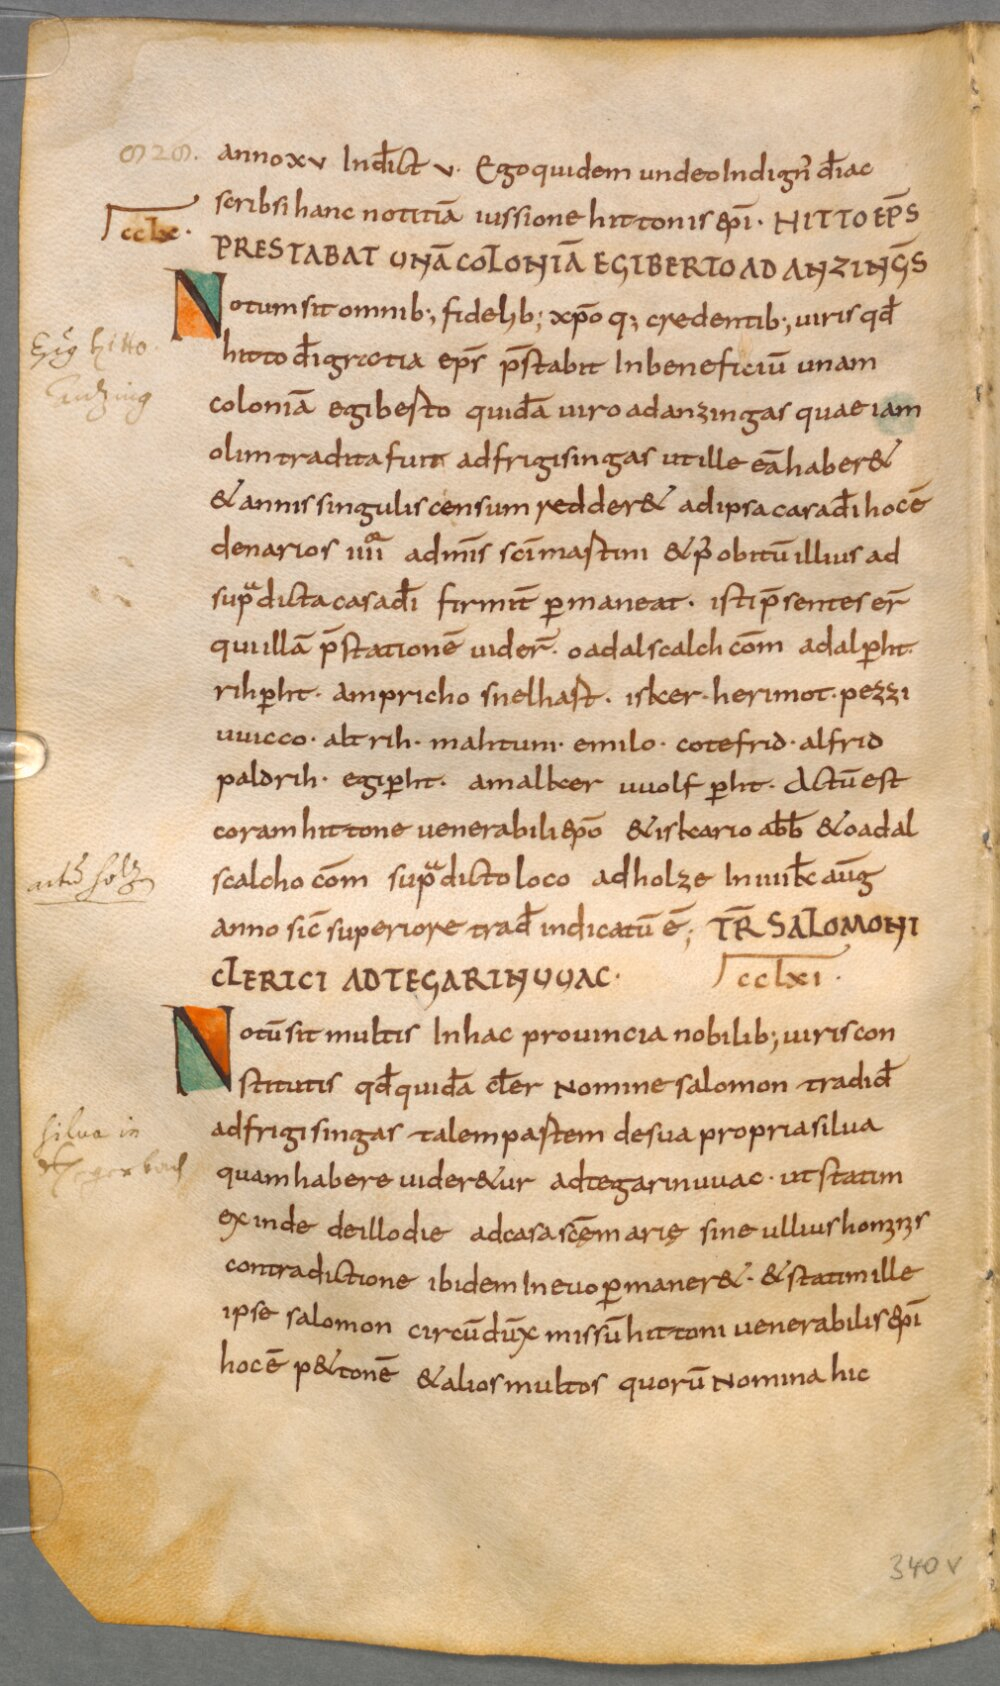 anno xv Indict v. Ego quidem undeo Indign̄ diac
scribsi hanc notitiā iussione hittonis ep̄i. HITTO EP̄S
ccLx.
PRESTABAT UNĀ COLONIĀ EGIBERTO AD ANZINGAS
Notum sit omnib; fidelib; xp̄o q; credentib; uiris qđ
hitto đi gratia ep̄s p̄stabit In beneficiū unam
coloniā egiberto quidā uiro ad anzingas quae iam
olim tradita fuit ad frigisingas ut ille eā haber&
& annis singulis censum redder& ad ipsa casa đi hoc ē
denarios iiii ad mis̄ sc̄i martini & p̄ obitū illius ad
supadicta casa đi firmit̄ permaneat. isti p̄sentes er̄
qui illā p̄stationē uider̄. oadalscalch com̄ adalperht.
rihperht. ampricho snelhart. isker. herimot. pezzi
uuicco. alt rih. mahtuni. emilo. cotefrid. alfrid
paldrih. egiperht. amalker uuolf perht. Actū est
coram hittone uenerabili ep̄o & iskario abb̄ & oadal
scalcho com̄ supadicto loco ad holze In uiiii kł aug̅
anno sic̄ superiore trađ indicatū ē; TR̄ SALOMONI
CLERICI AD TEGARINUUAC.
ccLxi.
Notū sit multis In hac prouincia nobilib; uiris con
stitutis qđ quidā cler Nomine salomon tradiđ
ad frigisingas talem partem de sua propria silua
quam habere uider&ur ad tegarinuuac. ut statim
exinde de illo die ad casa sc̄ę marię sine ullius hominis
contradictione ibidem In euo permaner&. & statim ille
ipse salomon circūdūx missū hittoni uenerabilis ep̄i
hoc ē p&tonē & alios multos quorū Nomina hic
hitto
Anzing
actū holz
silua in
340 v